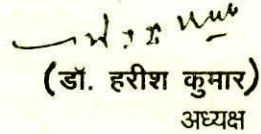 (डॉ. हरीश कुमार)
अध्यक्ष